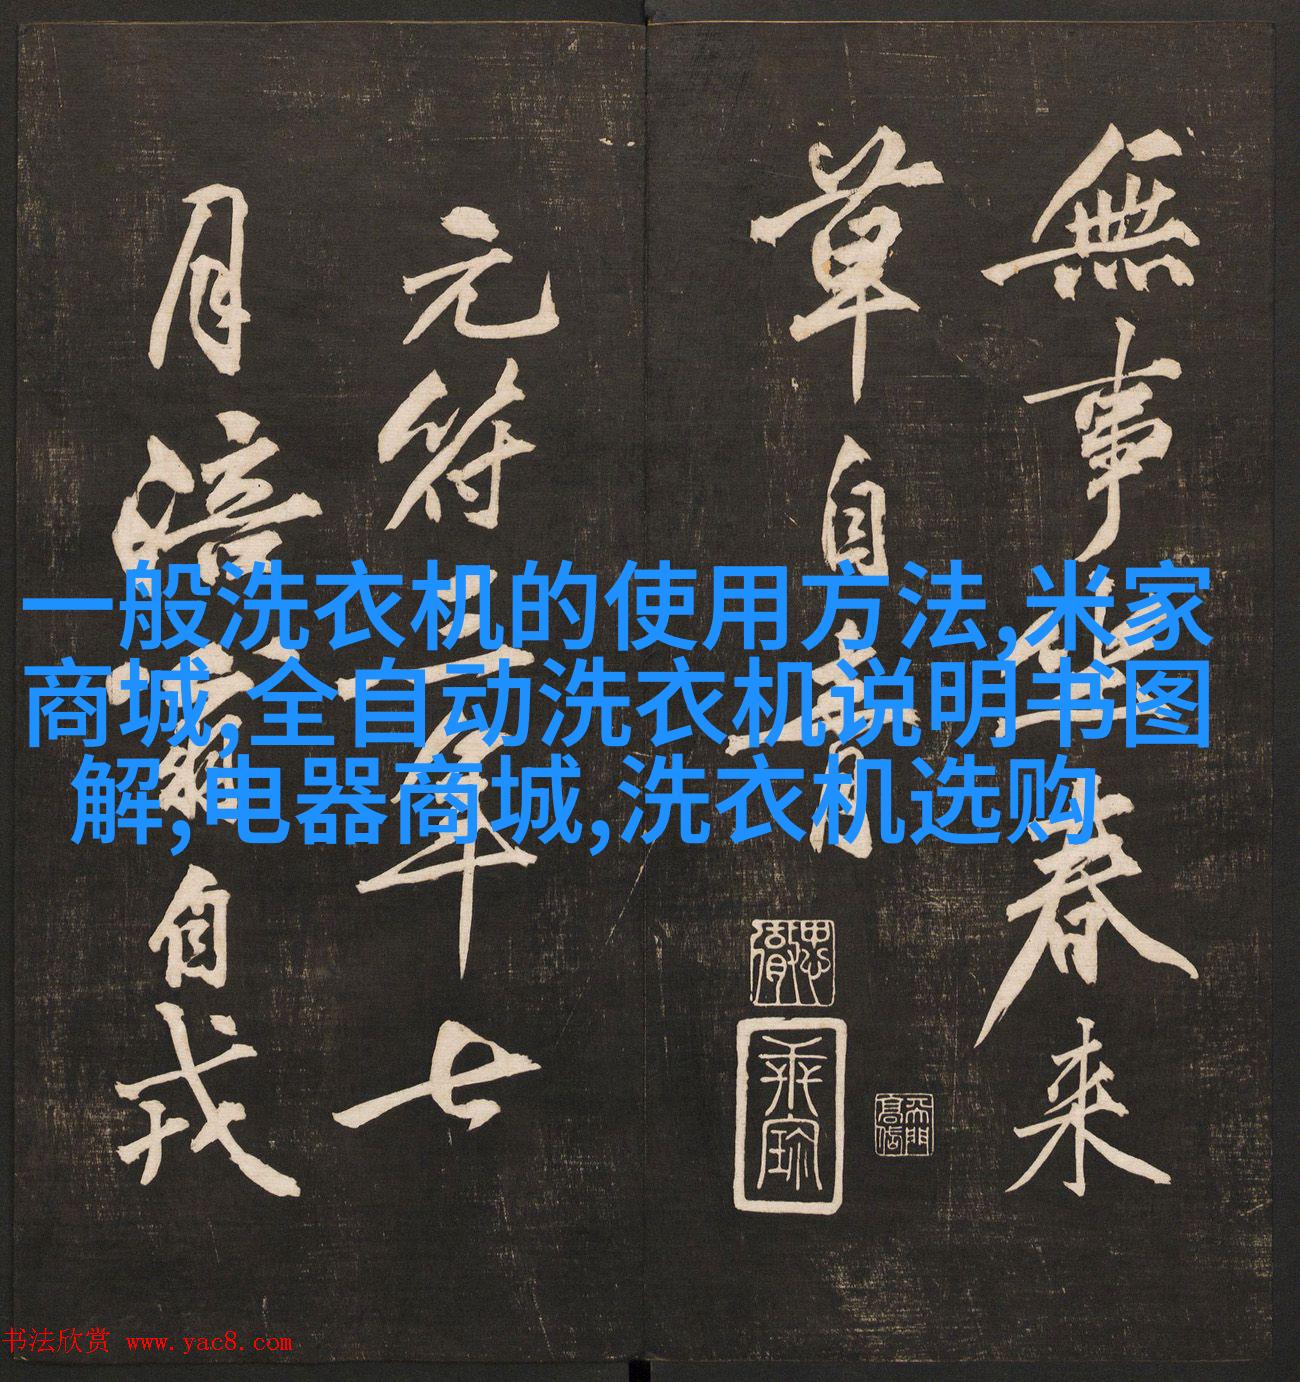 無事坐春来
草自青
元符三年七
月涪翁自戎
思
乘
一般洗衣机的使用方法,米家
商城,全自动洗衣机说明书图
解,电器商城,洗衣机选购
书法欣赏 www.yac8.com